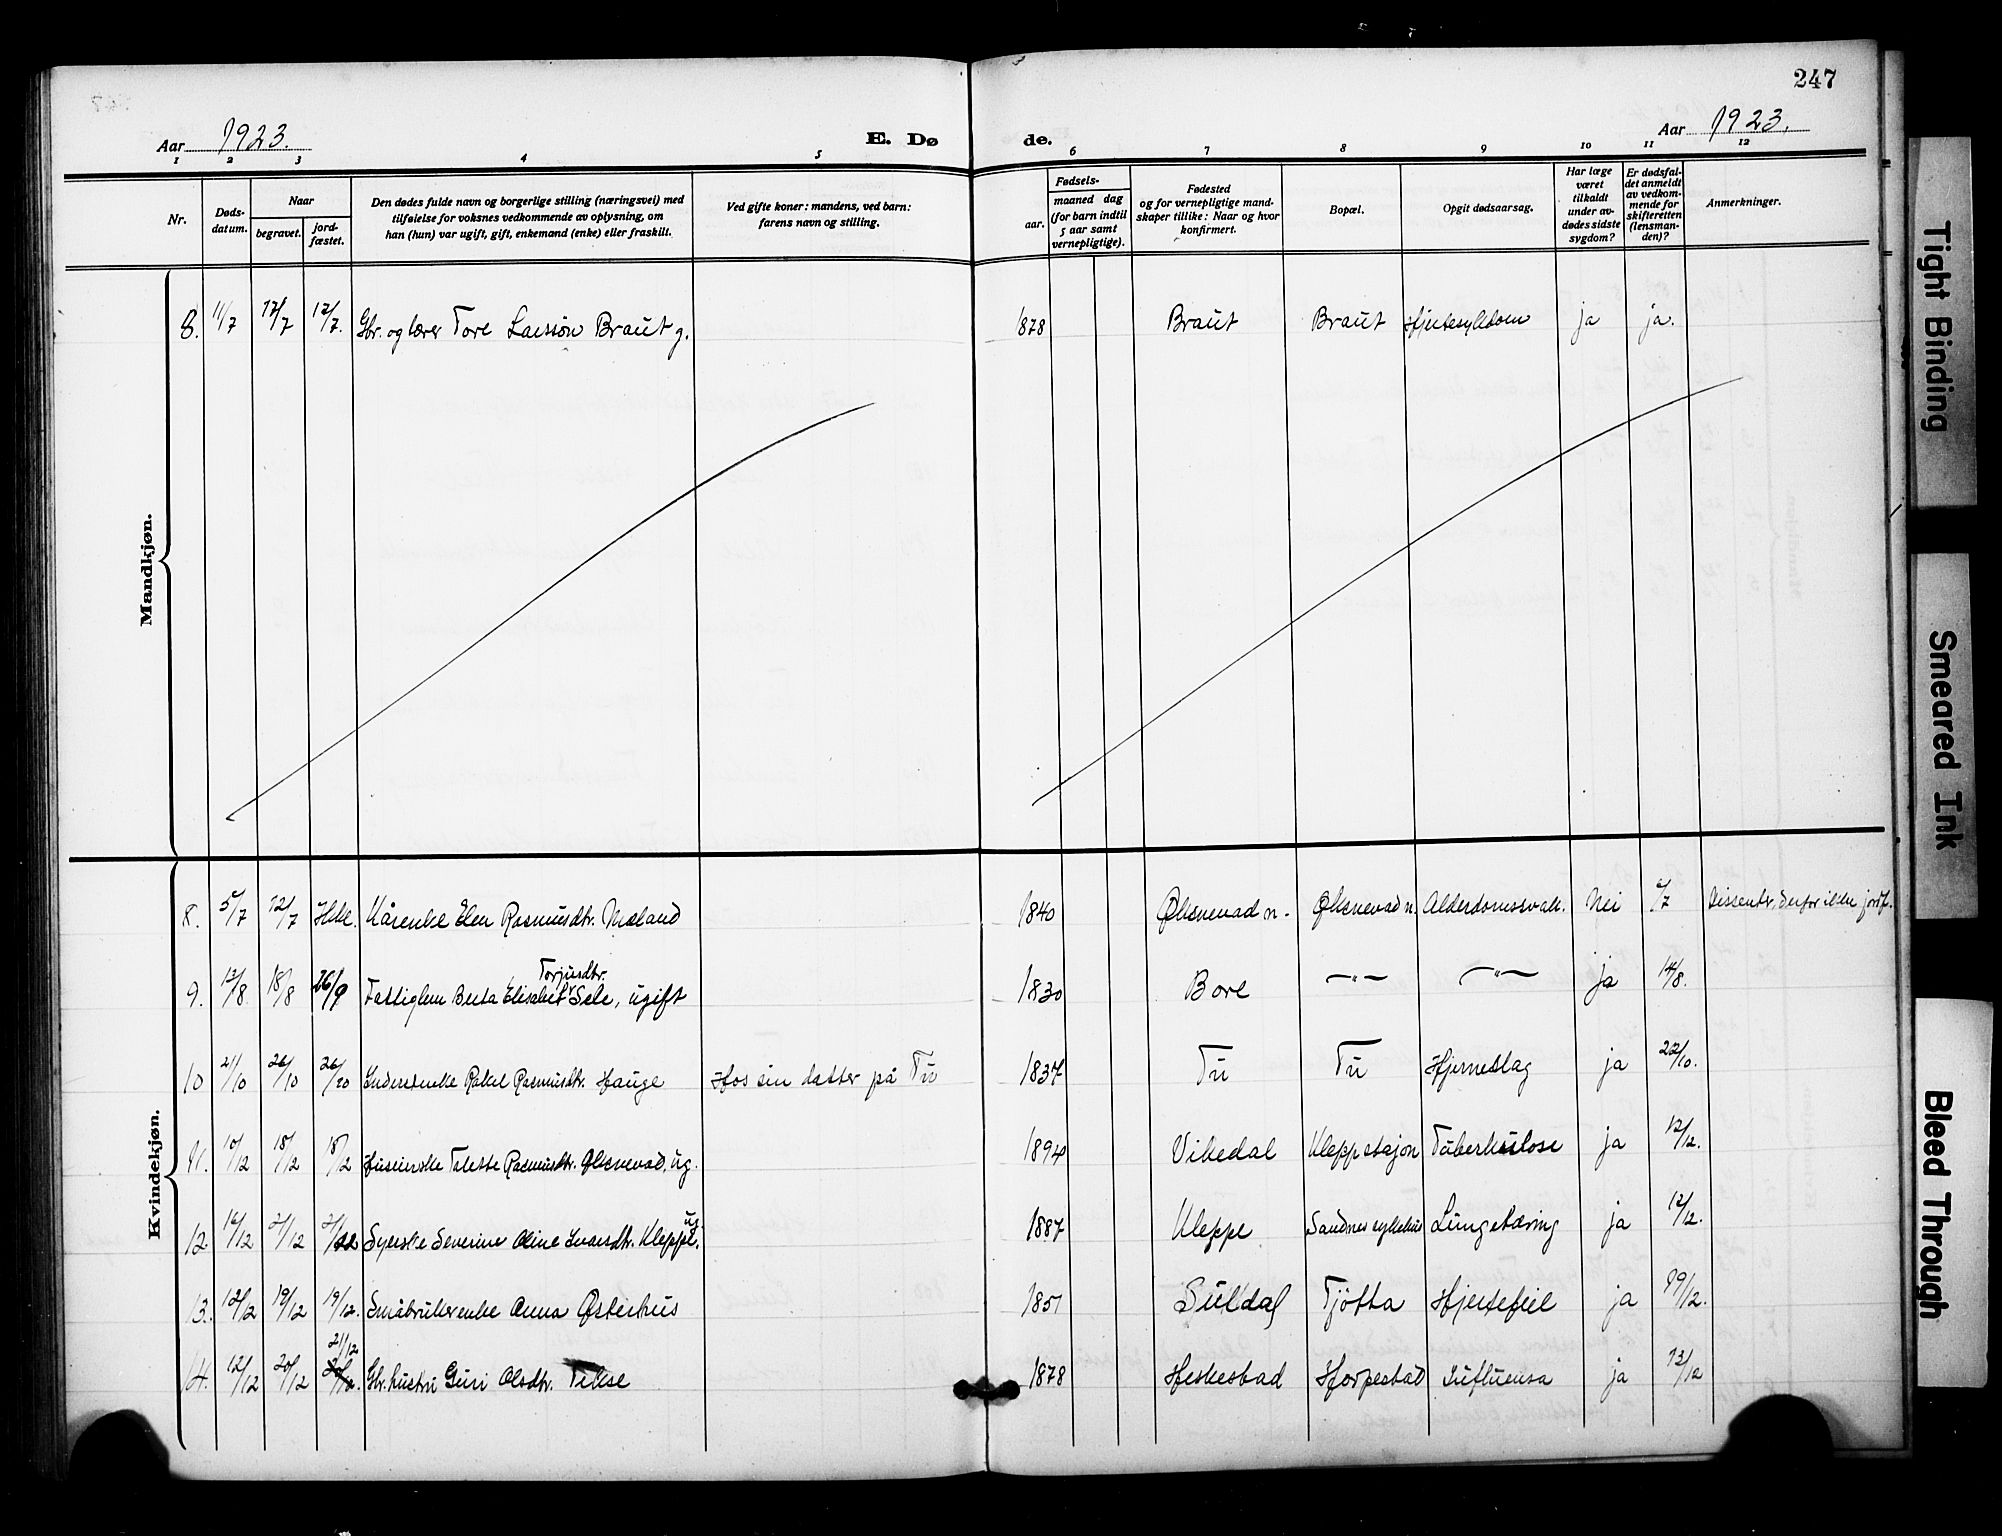 247
Aar 1923.
E. Dø
de.
Aar 1923.
1 2 3 4 5 6 7 8 9 10 11 12
Nr.
Døds-
datum.
Naar
begravet.
jord-
fæstet.
Den dødes fulde navn og borgerlige stilling (næringsvei) med
tilføielse for voksnes vedkommende av oplysning, om
han (hun) var ugift, gift, enkemand (enke) eller fraskilt.
Ved gifte koner: mandens, ved barn:
farens navn og stilling.
Fødsels-
aar.
maaned dag
(for barn indtil
5 aar samt
vernepligtige).
Fødested
og for vernepligtige mand-
skaper tillike: Naar og hvor
konfirmert.
Bopæl.
Opgit dødsaarsag.
Har læge
været
tilkaldt
under av-
dødes sidste
sygdom?
Er dødsfal-
det anmeldt
av vedkom-
mende for
skifteretten
(lensman-
den)?
Anmerkninger.
Mandkjøn.
8. 11/7 17/7 17/7. Gbr. og lærer Tore Larssön Braut g. 1878 Braut Braut Hjertesykdom ja ja.
Kvindekjøn.
8. 5/7 12/7 Ikke. Kårenke Elen Rasmusdtr. Mæland 1840 Øksnevad n. Øksnevad n. Alderdomssvakk. Nei 6/7 Dissenter, derfor ikke jordf.
Torjusdtr.
9. 13/8 18/8 26/9 Fattiglem Berta Elisabet Sele, ugift 1830 Bore —"— —"— ja 14/8.
10 21/10 26/10 26/10 Inderstenke Rakel Rasmusdtr. Hauge Hos sin datter på Tu 1837 Tu Tu Hjerneslag ja 22/10.
11. 10/12 18/12 18/12 Rasmusdtr. Øksnevad, ug. 1894 Vikedal Kleppstasjon Tuberkulose ja 12/12.
ug.
12 Syerske Severine Oline Ivarsdtr. Kleppe. 1887 Kleppe Sandnes sykehus Lungetæring ja 12/12.
13. 12/12 19/12 19/12. Småbrukerenke Anna Østerhus 1851 Suldal Tjøtta Hjertefeil ja 19/12.
21/12
14. 12/12 20/12 Gbr. hustru Guri Olsdtr. Tikse 1878 Heskestad Horpestad Influensa ja 13/12
Tight Binding
Smeared Ink
Bleed Through